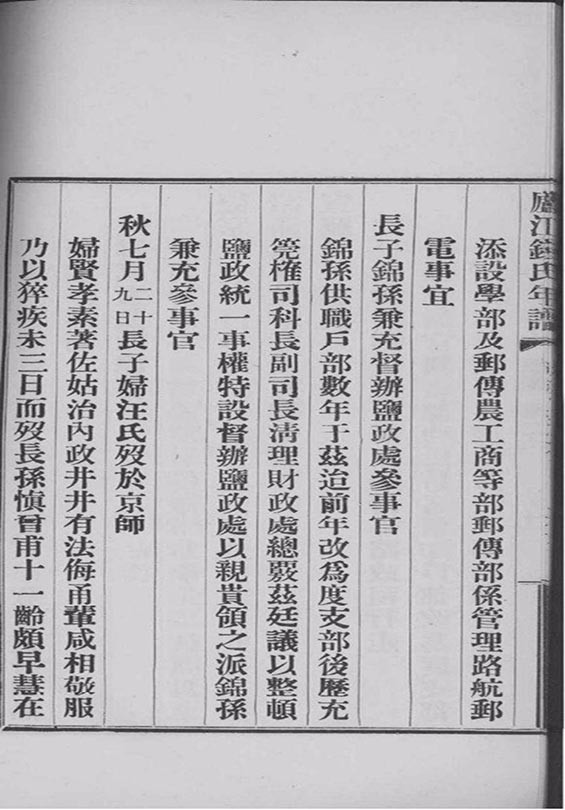 廬江錢氏年譜
添設學部及郵傳農工商等部郵傳部係管理路航郵
電事宜
長子錦孫兼充督辦鹽政處參事官
錦孫供職戶部數年于茲迨前年改爲度支部後歷充
筦榷司科長副司長清理財政處總覈茲廷議以整頓
鹽政統一事權特設督辦鹽政處以親貴領之派錦孫
兼充參事官
秋七月二十九日長子婦汪氏歿於京師
婦賢孝素著佐姑治內政井井有法侮甬輩咸相敬服
乃以猝疾未三日而歿長孫愼曾甫十一齡頗早慧在